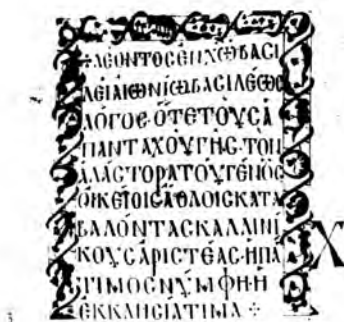 +ΛΕΟΝΤΟCΕΝΧΩΒΑCΙ
ΛΕΙΑΙΩΝΙΩΒΑCΙΛΕΩC
ΛΟΓΟC·ΟΤΕΤΟΥCΑ
ΠΑΝΤΑΧΟΥΓΗC·ΤΟΠ
ΑΛΑCΤΟΡΑΤΟΥΓΕΝΟC
ΟΙΚΕΙΟΙCΑΘΛΟΙCΚΑΤΑ
ΒΑΛΟΝΤΑCΚΑΛΛΙΝΙ
ΚΟΥCΑΡΙCΤΕΑC·ΗΠΑ
ΤΙΜΟCΝΥΜΦΗ·Η
ΕΚΚΛΗCΙΑΤΙΜΑ+
Χ